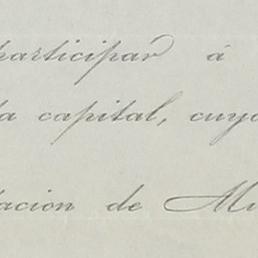 participar á
la capital, cuyo
tacion de Mu